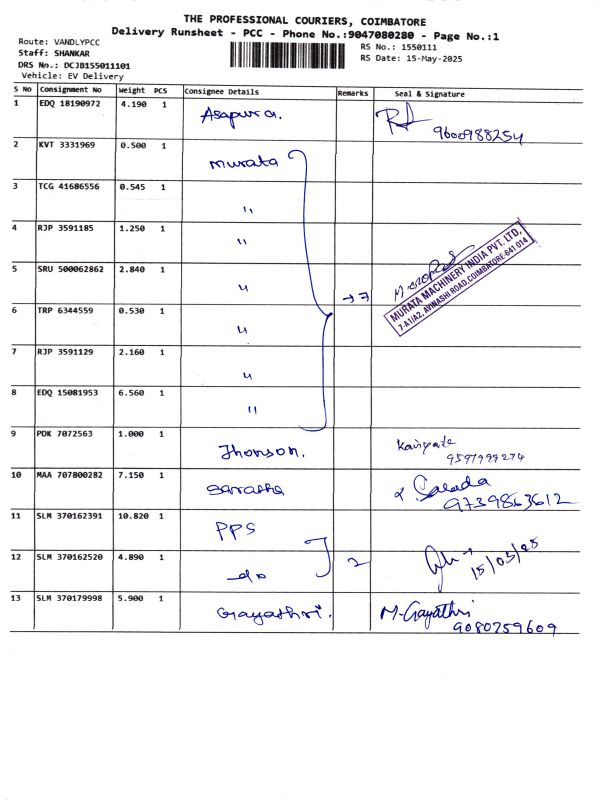 THE PROFESSIONAL COURIERS, COIMBATORE
Delivery Runsheet - PCC - Phone No.:9047080280 - Page No.:1
Route: VANDLYPCC
RS No.: 1550111
Staff: SHANKAR
RS Date: 15-May-2025
DRS No.: DCJB155011101
Vehicle: EV Delivery
S No Consignment No Weight PCS Consignee Details Remarks Seal & Signature
1 EDQ 18190972 4.190 1 Asapura.
9600988254
2 KVT 3331969 0.500 1 Murata
3 TCG 41686556 0.545 1 "
4 RJP 3591185 1.250 1 "
5 SRU 500062862 2.840 1 " → 7
MURATA MACHINERY INDIA PVT. LTD,
7-A1/A2, AVINASHI ROAD, COIMBATORE-641 014
6 TRP 6344559 0.530 1 "
7 RJP 3591129 2.160 1 "
8 EDQ 15081953 6.560 1 "
9 PDK 7072563 1.000 1 Jhonson.
9597999274
10 MAA 707800282 7.150 1 Saratha
9739863612
11 SLM 370162391 10.820 1 PPS
12 SLM 370162520 4.890 1 do 2 15/05/25
13 SLM 370179998 5.900 1 Gayathri. M-Gayathri
9080259609